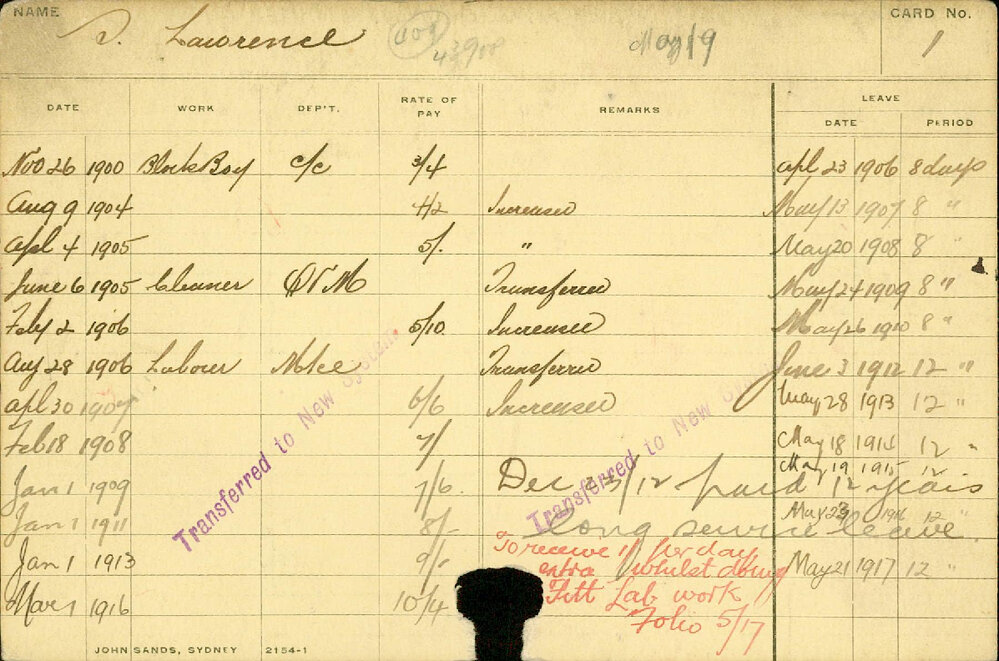 NAME S. Lawrence May 19 CARD No. 1
DATE WORK DEP'T. RATE OF PAY REMARKS LEAVE
DATE PERIOD
Nov 26 1900 Block Boy c/c 3/4 Apl 23 1906 8 days
Aug 9 1904 4/2 Increased May 13 1907 8 "
Apl 4 1905 5/. " May 20 1908 8 "
June 6 1905 Cleaner Transferred May 24 1909 8 "
Feby 2 1906 5/10 Increased May 26 1910 8 "
Aug 28 1906 Labourer Transferred June 3 1912 12 "
Apl 30 1907 6/6 Increased May 28 1913 12 "
Feb 18 1908 7/ May 18 1914 12 "
May 19 1915 12
Jan 1 1909 7/6 Dec 23/12 paid 12 years
Jan 1 1911 8/- long service leave. May 29 1916 12 "
Jan 1 1913 9/- To receive 1/ per day May 21 1917 12 "
extra whilst doing
Mar 1 1916 10/4 Fitt Lab work
Folio 5/17
Transferred to New System
Transferred to New
JOHN SANDS, SYDNEY 2154-1